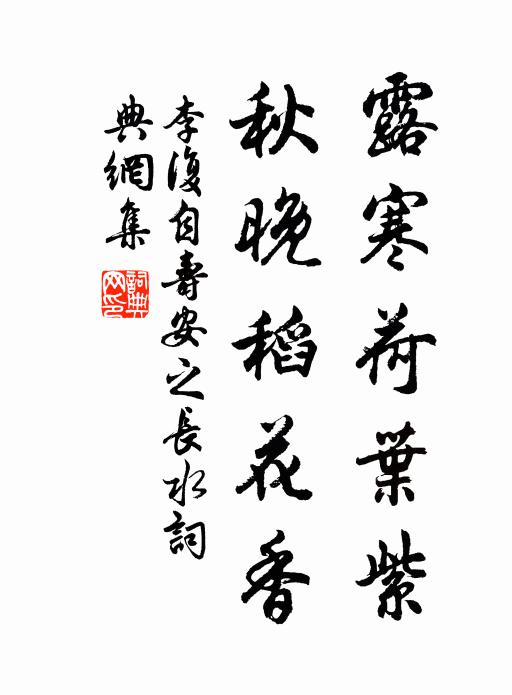 露寒荷葉紫
秋晚稻花香
李復自壽安之長水詞
典網集
詞典
网印